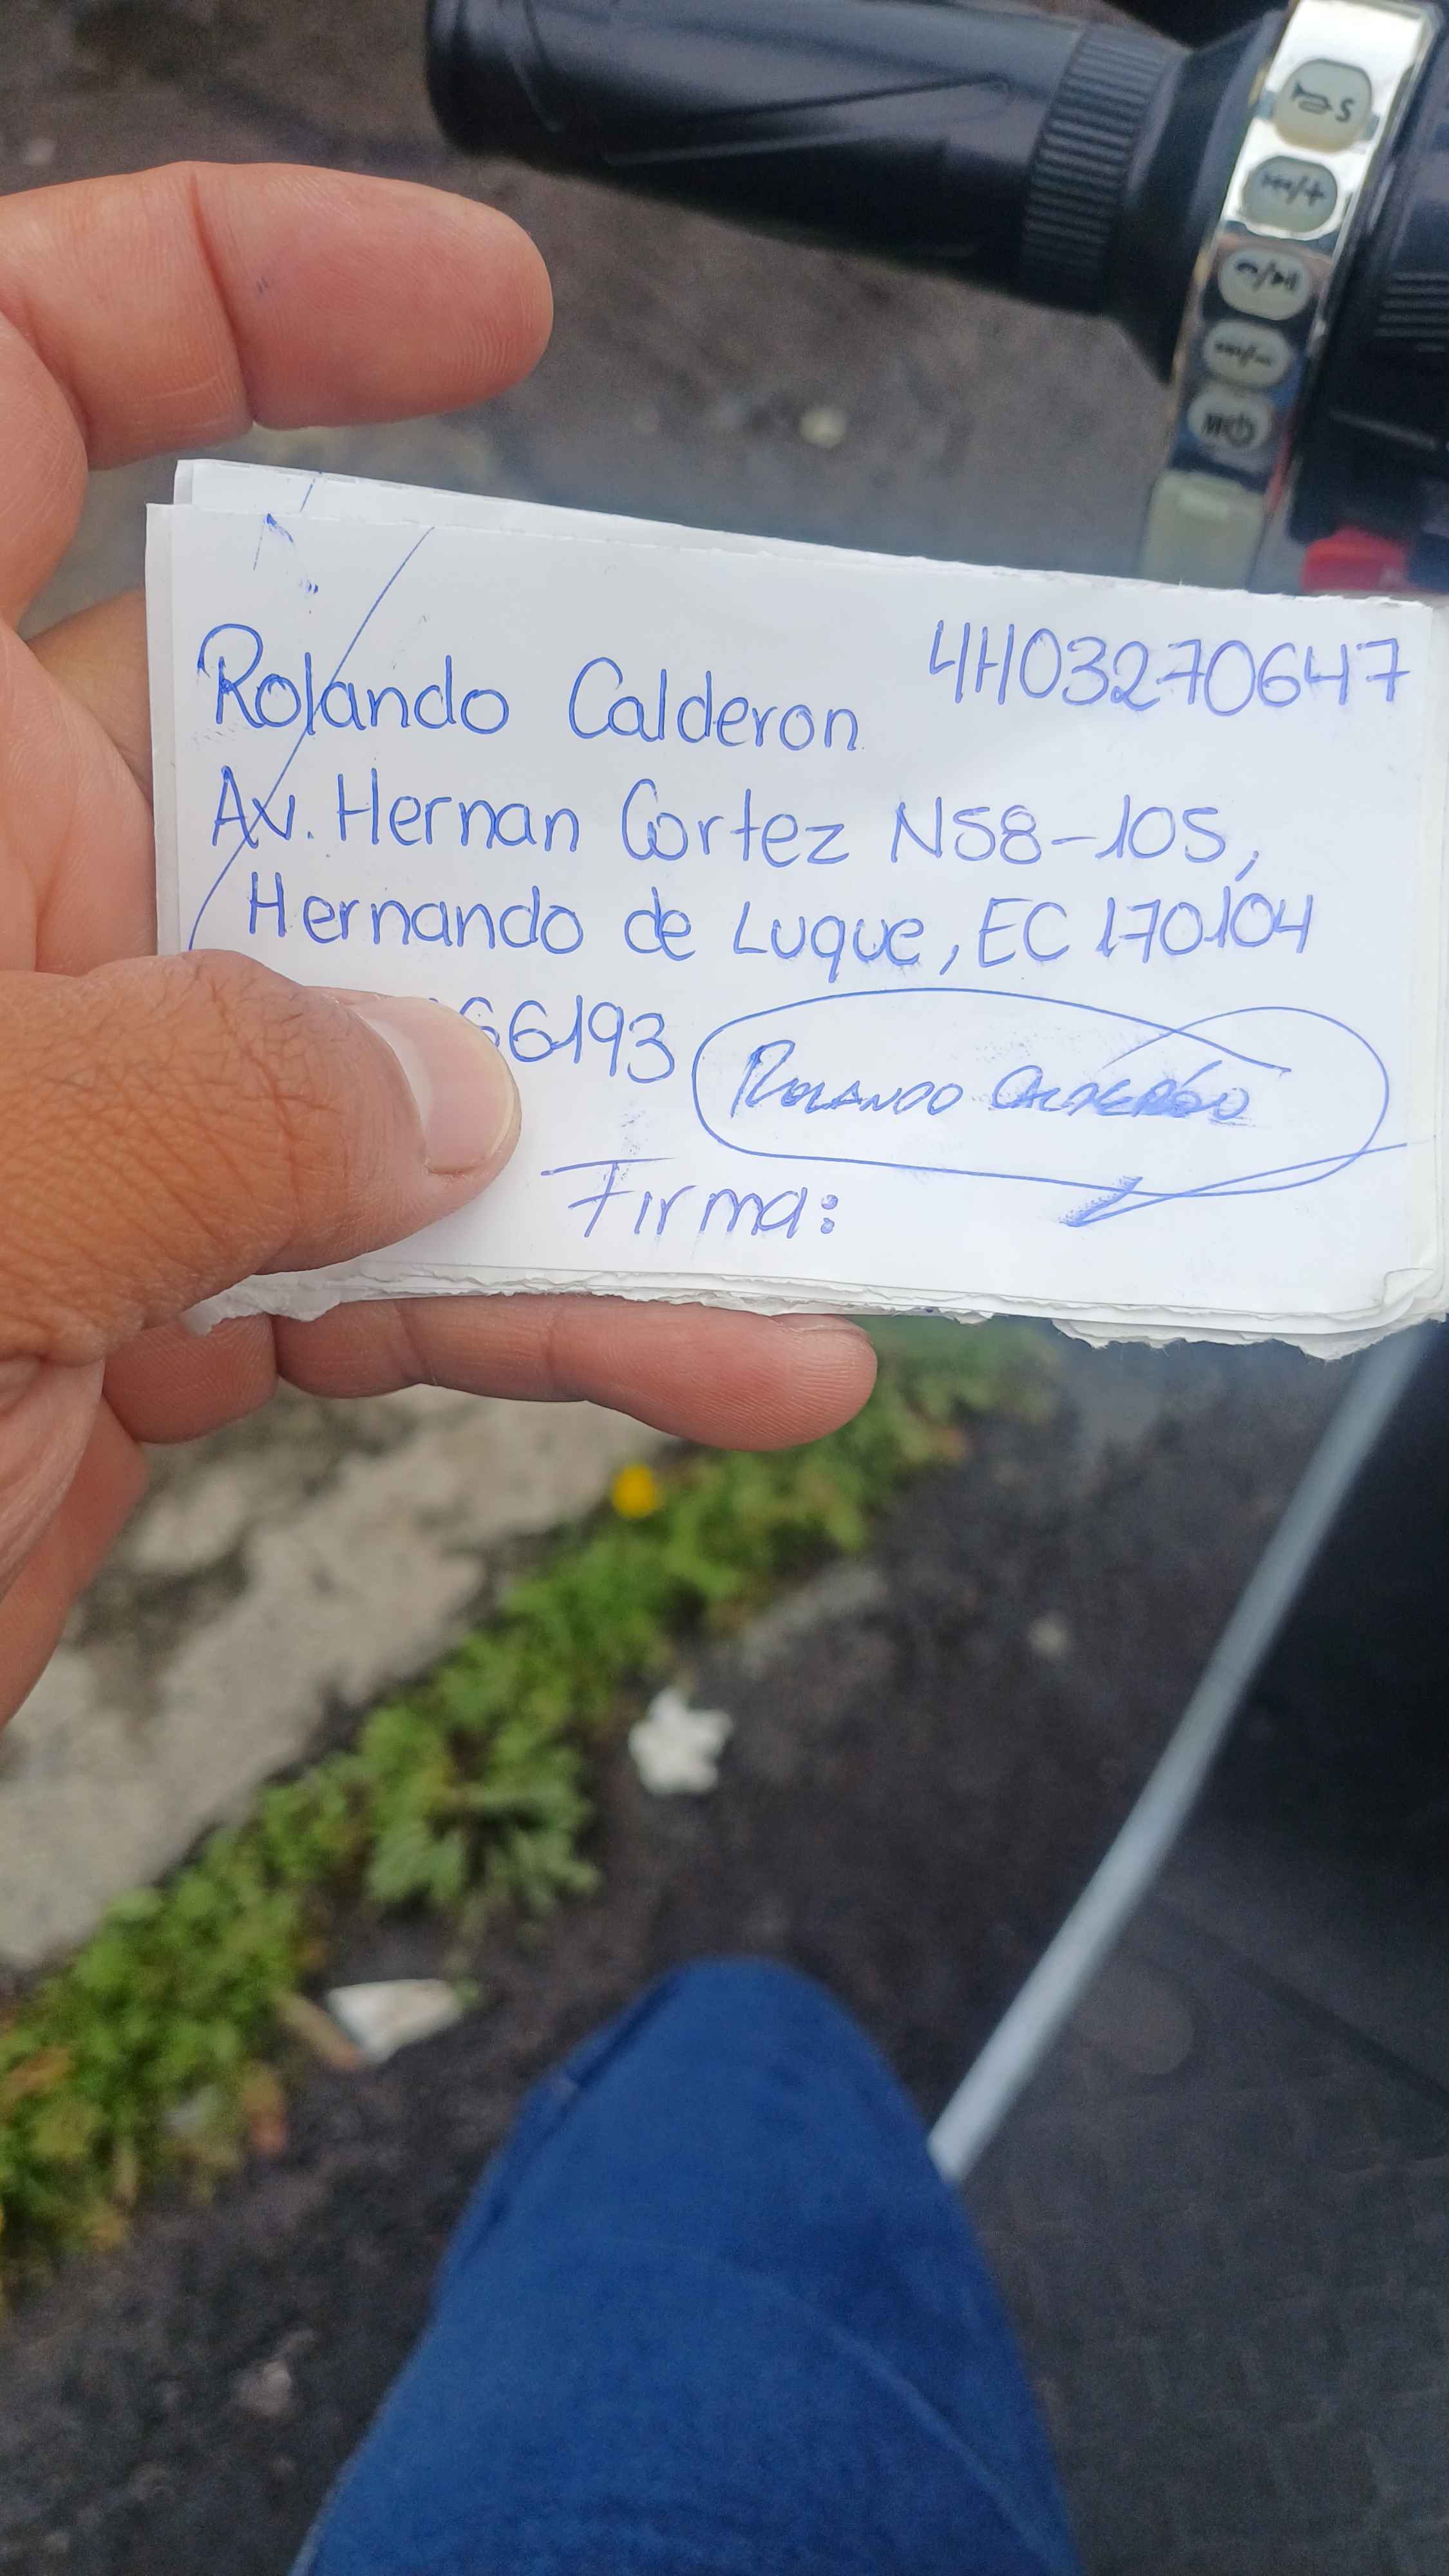 Rolando Calderon 4H03270647
Av. Hernan Cortez N58-105,
Hernando de Luque, EC 170104
66193
Rolando Calderón
Firma: